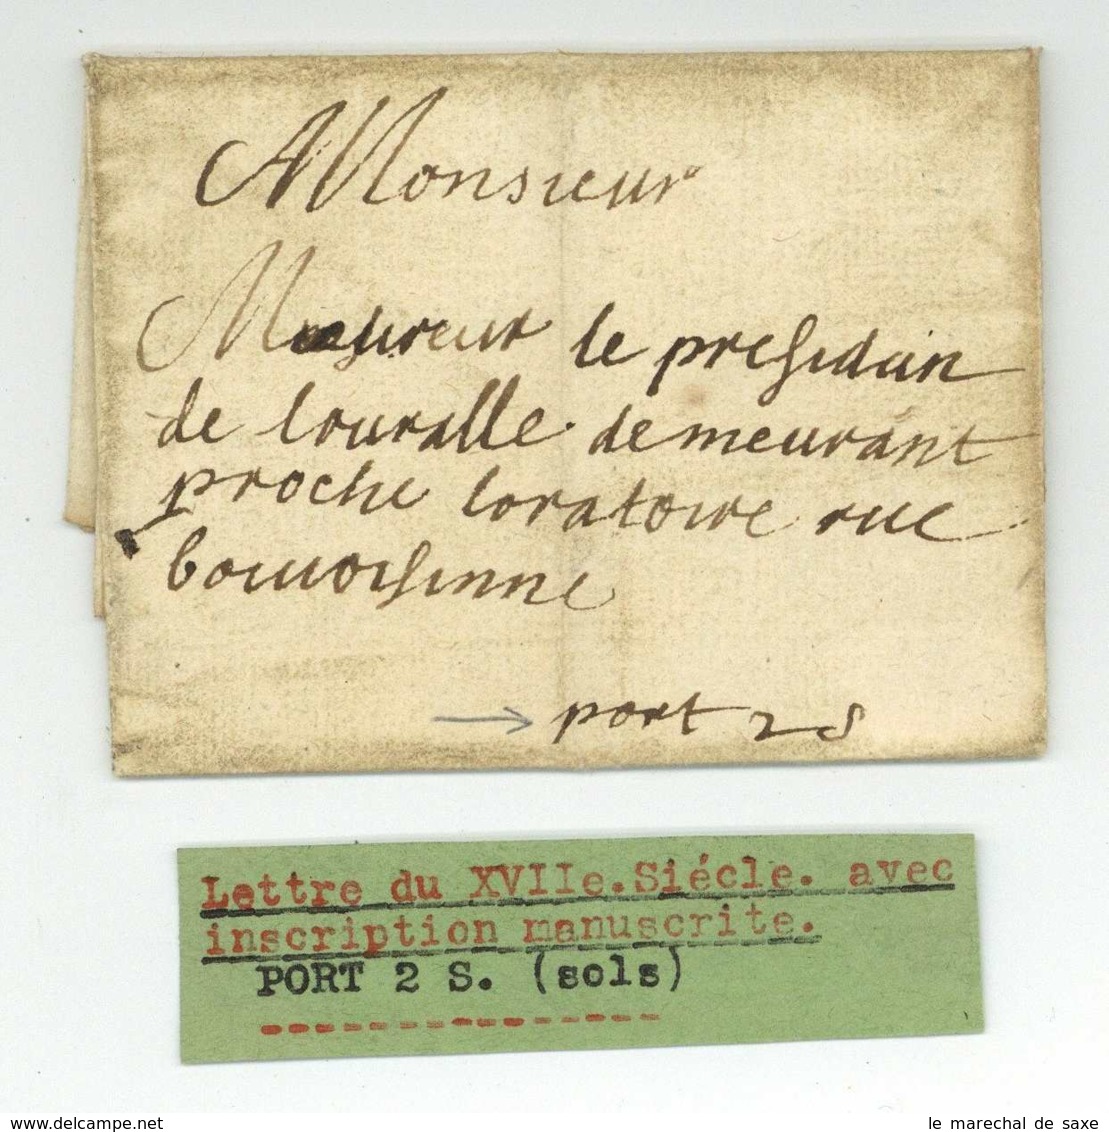 A Monsieur
Monsieur le presidan
de louralle demeurant
proche loratoire rue
port 2 s
Lettre du XVIIe.Siécle. avec
inscription manuscrite.
PORT 2 S. (sols)
---------------
delcampe.net
le marechal de saxe